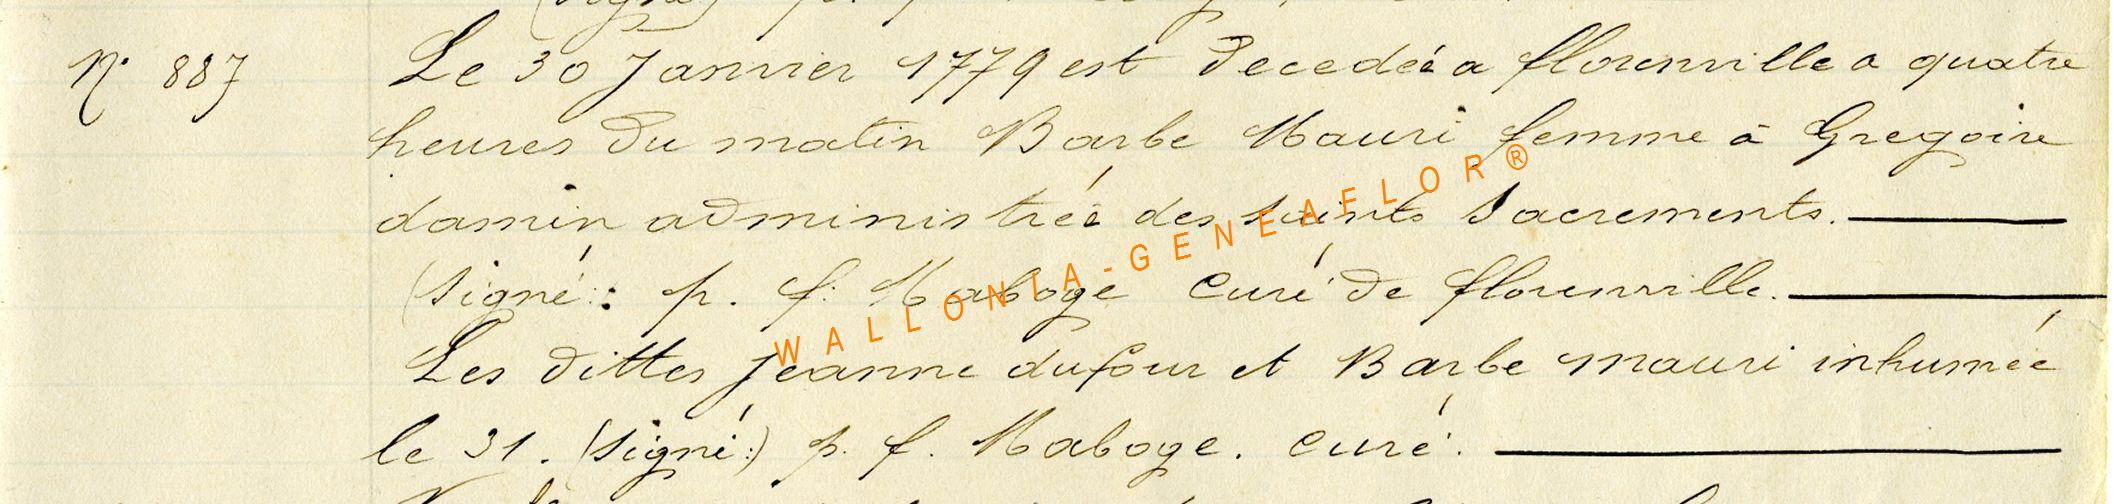 N° 887
Le 30 Janvier 1779 est decedéé a florenville a quatre
heures du matin Barbe Mauri femme à Gregoire
damin administréé des saints sacrements.
(signé: p. f. Maboge Curé de florenville.
Les dittes Jeanne dufour et Barbe mauri inhumée
le 31. (signé:) p. f. Maboge. curé.
WALLONIA-GENEAFLOR®